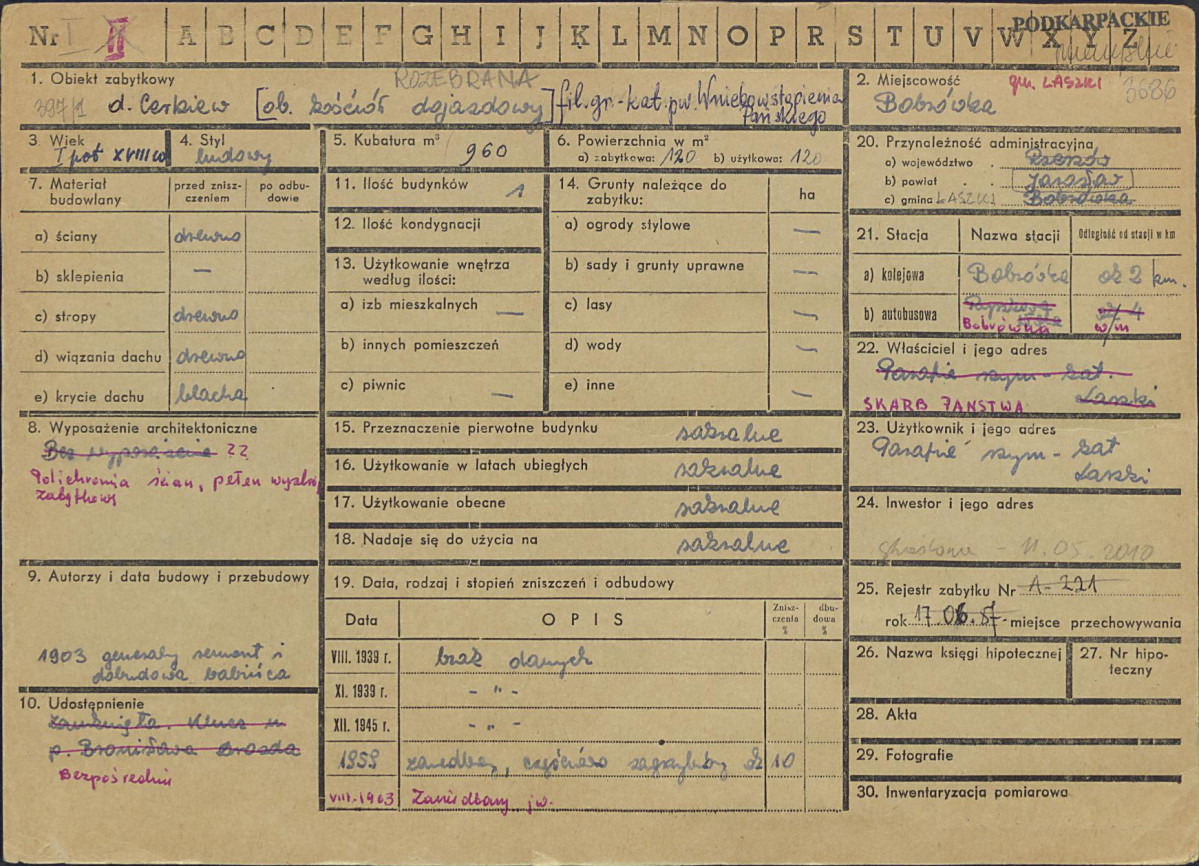 Nr I II A B C D E F G H I J K L M N O P R S T U V W X Y Z
PODKARPACKIE
przemyskie
1. Obiekt zabytkowy
ROZEBRANA
397/1 d. Cerkiew [ob. kościół dojazdowy] fil. gr.-kat. pw. Wniebowstąpienia
Pańskiego
2. Miejscowość gm. LASZKI 3686
Bobrówka
3. Wiek
I poł XVIII w
4. Styl
ludowy
5. Kubatura m³
960
6. Powierzchnia w m²
a) zabytkowa: 120 b) użytkowa: 120
7. Materiał budowlany
przed zniszczeniem
po odbudowie
a) ściany drewno
b) sklepienia —
c) stropy drewno
d) wiązania dachu drewno
e) krycie dachu blacha
8. Wyposażenie architektoniczne
Bez wyposażenia ??
Polichromia ścian, pełen wystrój
zabytkowy
9. Autorzy i data budowy i przebudowy
1903 generalny remont i
dobudowa babińca
10. Udostępnienie
zamknięta. Klucz u
p. Bronisława Brozda
Bezpośrednie
11. Ilość budynków 1
12. Ilość kondygnacji
13. Użytkowanie wnętrza
według ilości:
a) izb mieszkalnych —
b) innych pomieszczeń
c) piwnic —
14. Grunty należące do
zabytku:
ha
a) ogrody stylowe —
b) sady i grunty uprawne —
c) lasy —
d) wody —
e) inne —
15. Przeznaczenie pierwotne budynku sakralne
16. Użytkowanie w latach ubiegłych sakralne
17. Użytkowanie obecne sakralne
18. Nadaje się do użycia na sakralne
19. Data, rodzaj i stopień zniszczeń i odbudowy
Data OPIS Zniszczenia % dbudowa %
VIII. 1939 r. brak danych
XI. 1939 r. - " -
XII. 1945 r. - " -
1959 zaniedbany, częściowo zagrzybiony 10
VIII-1963 Zaniedbany jw.
20. Przynależność administracyjna
a) województwo Rzeszów
b) powiat Jarosław
c) gmina LASZKI Bobrówka
21. Stacja
Nazwa stacji
Odległość od stacji w km
a) kolejowa Bobrówka ok 2 km.
b) autobusowa
Bobrówka w/m
22. Właściciel i jego adres
Parafia rzym-kat.
Laszki
SKARB PAŃSTWA
23. Użytkownik i jego adres
Parafia rzym-kat
Laszki
24. Inwestor i jego adres
skreślona - 11.05.2010
25. Rejestr zabytku Nr A-221
rok 17.06.87 miejsce przechowywania
26. Nazwa księgi hipotecznej
27. Nr hipoteczny
28. Akta
29. Fotografie
30. Inwentaryzacja pomiarowa